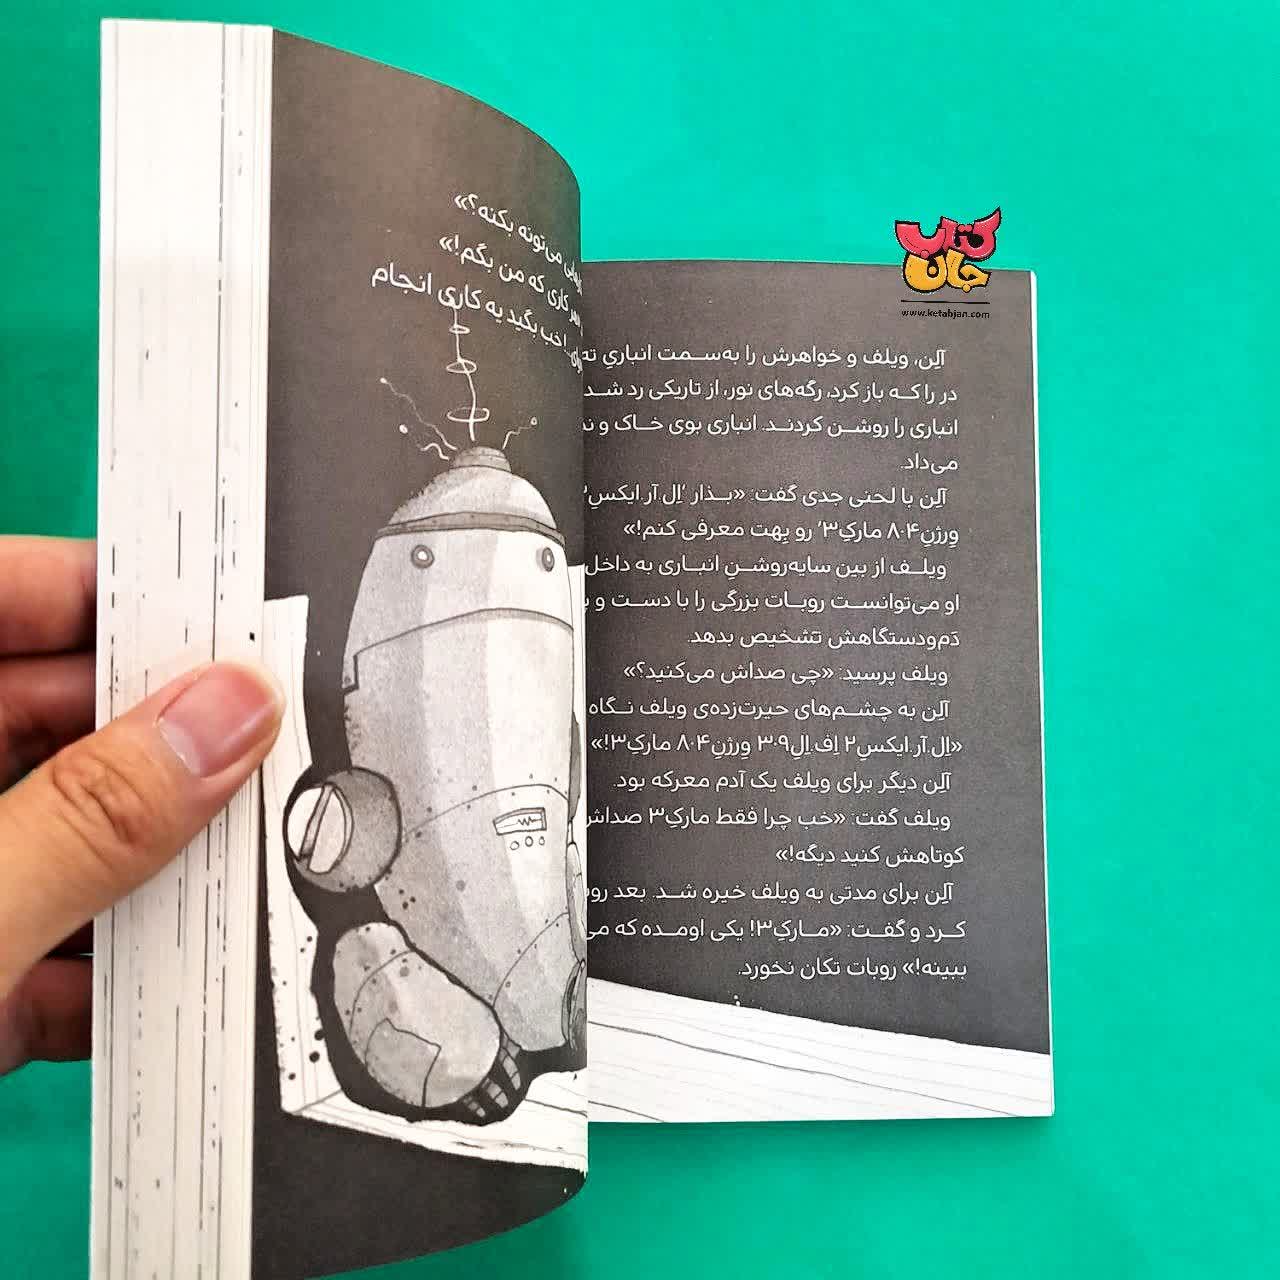 کتاب
جان
www.ketabjan.com
آلِن، ویلف و خواهرش را به‌سمت انباریِ
در را که باز کرد، رگه‌های نور، از تاریکی رد شد
انباری را روشن کردند. انباری بوی خاک و
می‌داد.
آلِن با لحنی جدی گفت: «بذار ‘اِل.آر.ایکسِ۲
وِرژنِ۸۰۴ مارکِ۳’ رو بِهت معرفی کنم!»
ویلف از بین سایه‌روشنِ انباری به داخل
او می‌توانست روبات بزرگی را با دست و
دَم‌ودستگاهش تشخیص بدهد.
ویلف پرسید: «چی صداش می‌کنید؟»
آلِن به چشم‌های حیرت‌زده‌ی ویلف نگاه
«اِل.آر.ایکسِ۲ اِف.اِلِ۳۰۹ وِرژنِ۸۰۴ مارکِ۳!»
آلِن دیگر برای ویلف یک آدم معرکه بود.
ویلف گفت: «خب چرا فقط مارکِ۳ صداش
کوتاهش کنید دیگه!»
آلِن برای مدتی به ویلف خیره شد. بعد
کرد و گفت: «مارکِ۳! یکی اومده که
ببینه!» روبات تکان نخورد.
می‌تونه بکنه؟»
کاری که من بگم!»
خب بگید یه کاری انجام